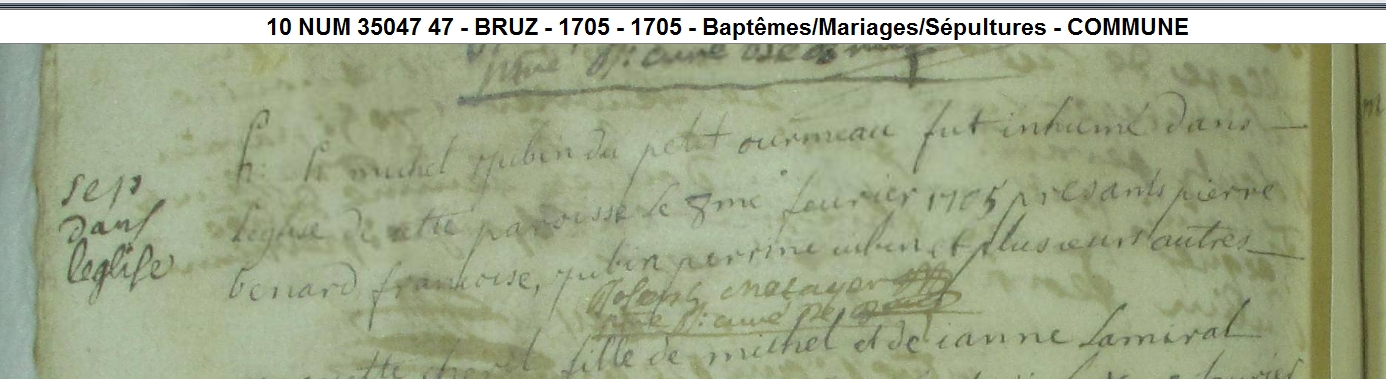 10 NUM 35047 47 - BRUZ - 1705 - 1705 - Baptêmes/Mariages/Sépultures - COMMUNE
curé
sep
dans
leglise
h. h. michel rubin du petit ourmeau fut inhumé dans
leglise de cette paroisse le 8me feurier 1705 presants pierre
benard francoise, rubin perrine rubin et plusieurs autres
metayer
curé de
fille de michel et de ianne lamiral